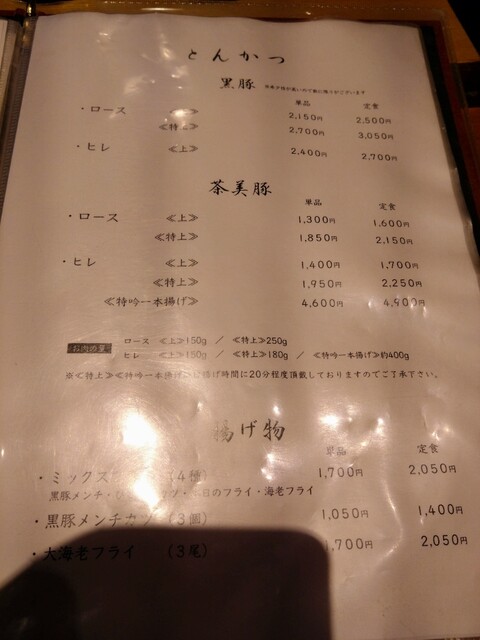 とんかつ
黒豚
単品 定食
・ロース 《上》 2,150円 2,500円
《特上》 2,700円 3,050円
・ヒレ 《上》 2,400円 2,700円
茶美豚
単品 定食
・ロース 《上》 1,300円 1,600円
《特上》 1,850円 2,150円
・ヒレ 《上》 1,400円 1,700円
《特上》 1,950円 2,250円
《特吟一本揚げ》 4,600円 4,900円
お肉の量 ロース 《上》150g ／ 《特上》250g
ヒレ 《上》150g ／ 《特上》180g ／ 《特吟一本揚げ》約400g
※《特上》《特吟一本揚げ》は揚げ時間に20分程度頂戴しておりますのでご了承下さい。
揚げ物
単品 定食
・ミックス (4種) 1,700円 2,050円
黒豚メンチ・ひ ツ・ 日のフライ・海老フライ
・黒豚メンチカツ (3個) 1,050円 1,400円
・大海老フライ (3尾) ,700円 2,050円